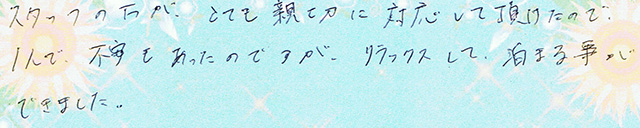 スタッフの方が、とても親切に対応して頂けたので、
1人で、不安もあったのですが、リラックスして、泊まる事が
できました。